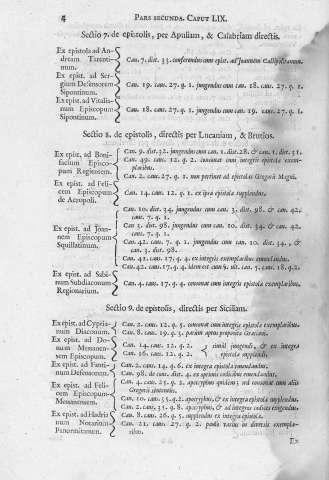 4 PARS SECUNDA. CAPUT LIX.
Sectio 7. de epistolis, per Apuliam, & Calabriam directis.
Ex epistola ad An-
dream Tarenti-
num.
Can. 7. dist. 33. conferendus cum epist. ad Joannem Callipolitanum.
Ex epist. ad Ser-
gium Defensorem
Sipontinum.
Can. 19. caus. 27. q. 1. jungendus cum can. 18. caus. 27. q. 1.
Ex epist. ad Vitalia-
num Episcopum
Sipontinum.
Can. 18. caus. 27. q. 1. jungendus cum can. 19. caus. 27. q. 1.
Sectio 8. de epistolis, directis per Lucaniam, & Brutios.
Ex epist. ad Boni-
facium Episco-
pum Regiensem.
Can. 9. dist. 32. jungendus cum can. 1. dist. 28. & can. 1. dist. 31.
Can. 49. caus. 12. q. 2. concinat cum integris epistolæ exem-
plaribus.
Can. 2. caus. 27. q. 1. non pertinet ad epistolas Gregorii Magni.
Ex epist. ad Feli-
cem Episcopum
de Acropoli.
Can. 14. caus. 12. q. 1. ex ipsa epistola supplendus.
Ex epist. ad Joan-
nem Episcopum
Squillatinum.
Can. 10. dist. 34. jungendus cum can. 3. dist. 98. & can. 42.
caus. 7. q. 1.
Can. 3. dist. 98. jungendus cum can. 10. dist. 34. & can. 42.
caus. 7. q. 1.
Can. 42. caus. 7. q. 1. jungendus cum can. 10. dist. 34. &
can. 3. dist. 98.
Can. 41. caus. 17. q. 4. ex integris exemplaribus emendandus.
Can. 42. caus. 17. q. 4. idem est cum §. ult. can. 5. caus. 18. q. 2.
Ex epist. ad Sabi-
num Subdiaconum
Regionarium.
Can. 4. caus. 17. q. 4. consonat cum integris epistolæ exemplaribus.
Sectio 9. de epistolis, directis per Siciliam.
Ex epist. ad Cypria-
num Diaconum.
Can. 2. caus. 12. q. 5. consonat cum integris epistolæ exemplaribus.
Can. 8. caus. 19. q. 3. partim aptus proposito Gratiani.
Ex epist. ad Do-
num Messanen-
sem Episcopum.
Can. 14. caus. 12. q. 2.
Can. 16. caus. 12. q. 2.
simul jungendi, & ex integra
epistola supplendi.
Ex epist. ad Fanti-
num Defensorem.
Can. 2. caus. 14. q. 6. ex integra epistola emendandus.
Can. 98. de cons. dist. 4. ex epistolis codicibus emendandus.
Ex epist. ad Feli-
cem Episcopum
Messanensem.
Can. 4. caus. 25. q. 2. apocryphus quidem, sed consonat cum aliis
Gregorii sententiis.
Can. 10. caus. 35. q. 2. apocryphus, & ex integra epistola supplendus.
Can. 2. caus. 35. q. 8. apocryphus, & ad integros codices exigendus.
Ex epist. ad Hadria-
num Notarium
Panormitanum.
Can. 8. caus. 26. q. 5. supplendus ex integra epistola.
Can. 21. caus. 27. q. 2. paulo varius in diversis exempla-
ribus.
Ex